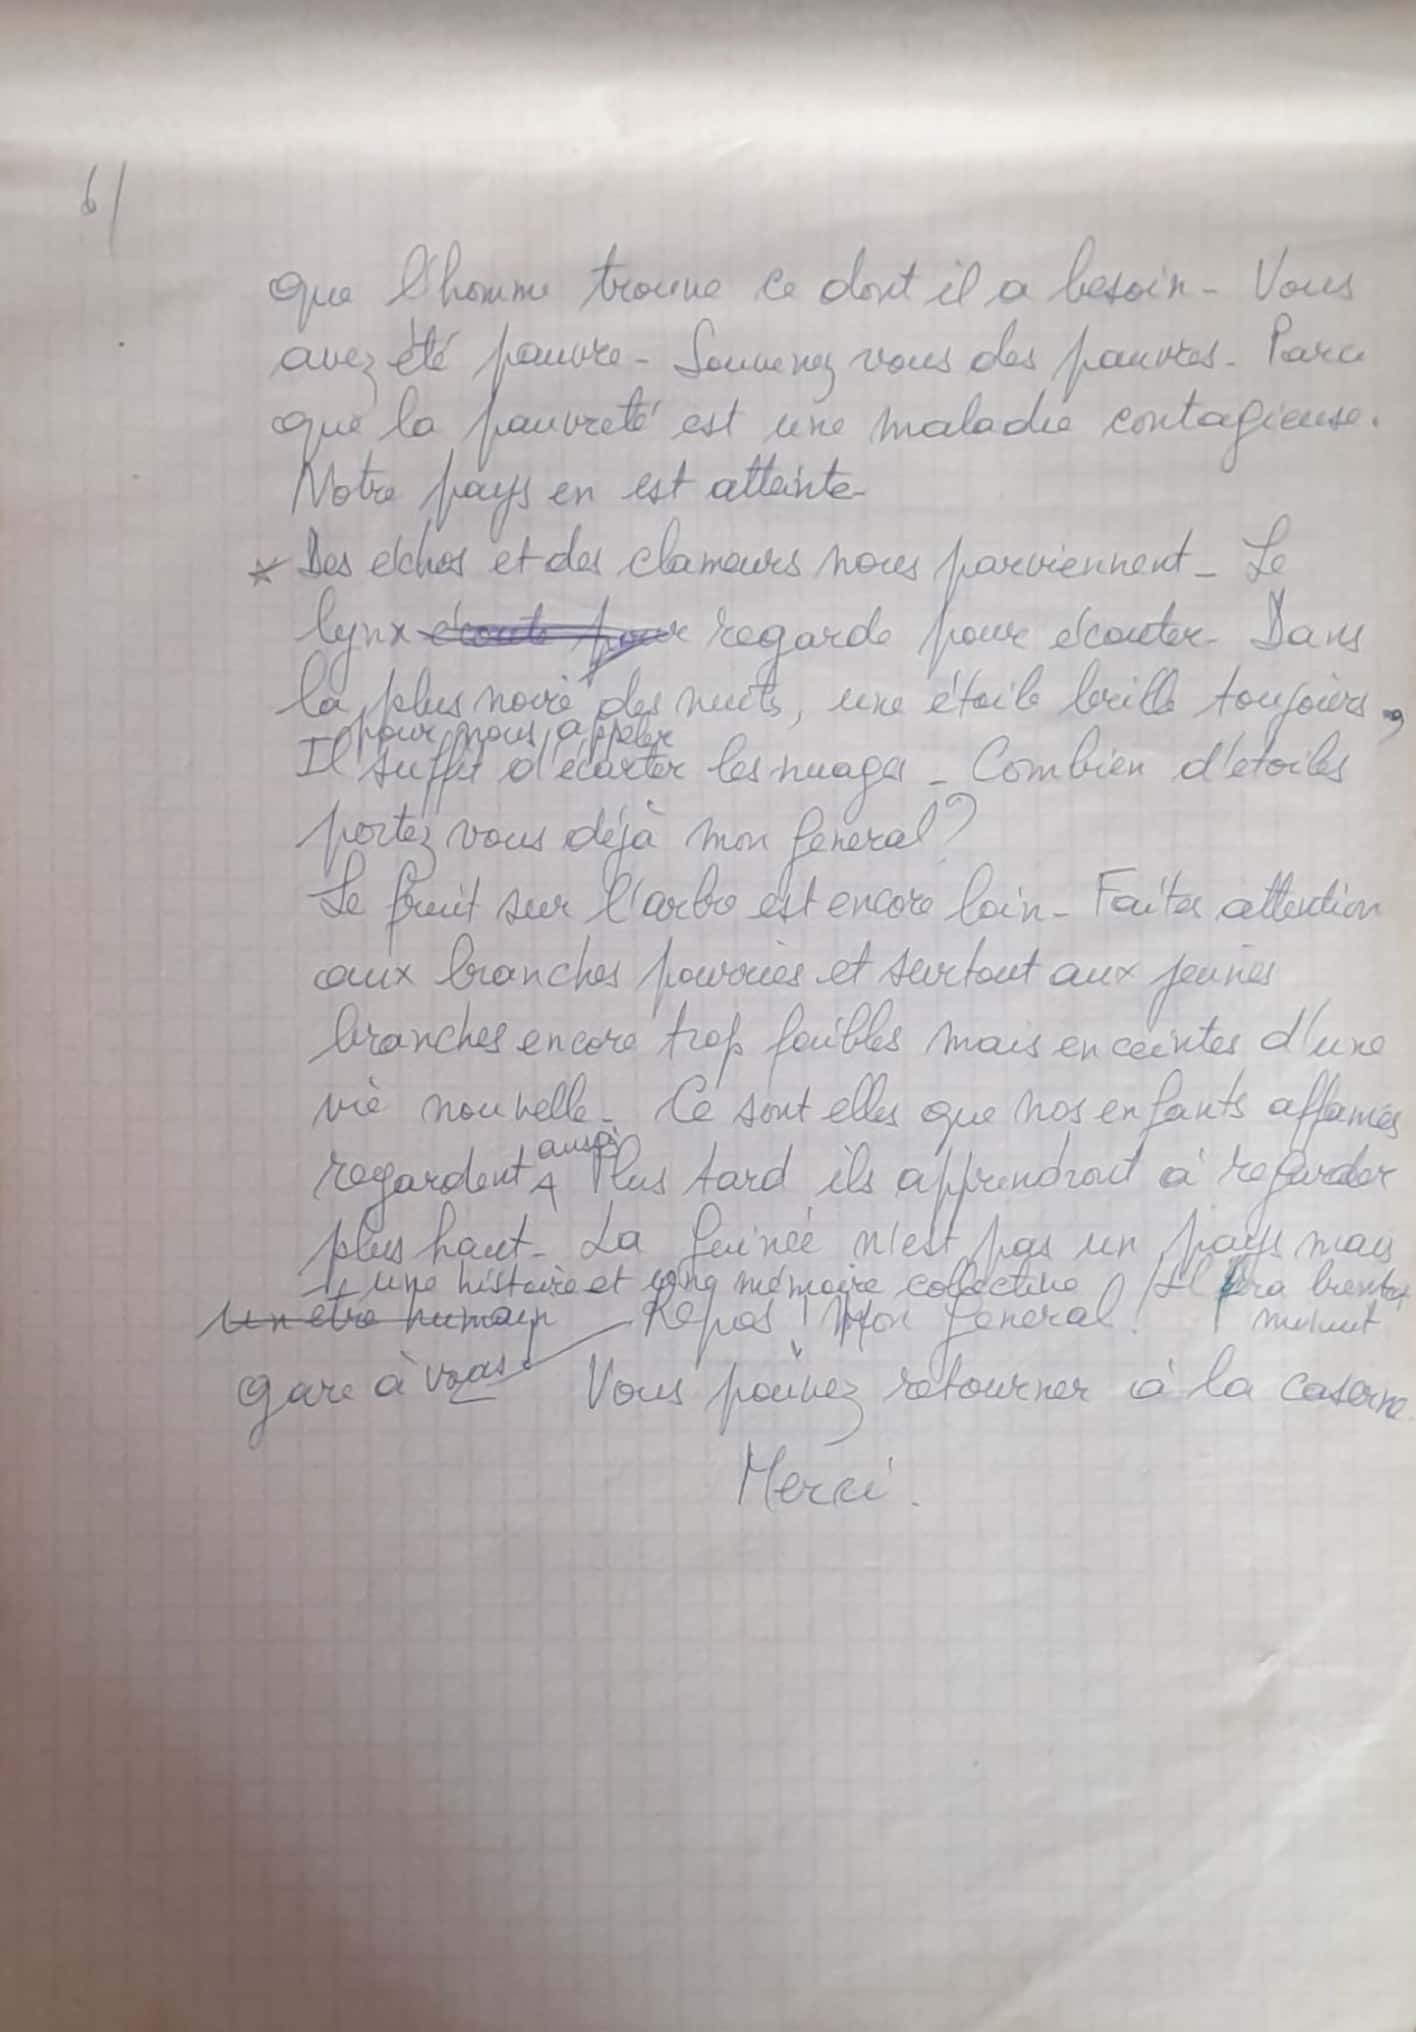 6/
que l'homme trouve ce dont il a besoin - Vous
avez été pauvre - Souvenez vous des pauvres - Parce
que la pauvreté est une maladie contagieuse.
Notre pays en est atteinte -
* Des échos et des clameurs nous parviennent - Le
lynx écoute pour regarde pour écouter - Dans
la plus noire des nuits, une étoile brille toujours,
pour nous appeler
Il suffit d'écarter les nuages - Combien d'étoiles
portez vous déjà mon General ?
Le fruit sur l'arbre est encore loin - Faites attention
aux branches pourries et surtout aux jeunes
branches encore trop faibles mais enceintes d'une
vie nouvelle - Ce sont elles que nos enfants affamés
aussi
regardent Plus tard ils apprendront à regarder
plus haut - La Guinée n'est pas un pays mais
une histoire et une mémoire collective Il sera bientôt
un être humain Repos ! Mon General ! minuit
gare à vous Vous pouvez retourner à la caserne.
Merci.